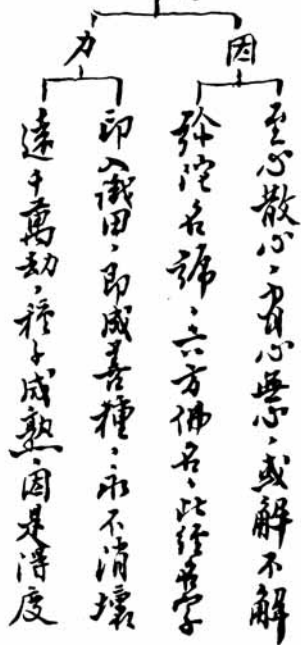 因
至心散心、有心無心、或解不解
彌陀名號、六方佛名、此經名字
力
即入識田、即成善種、永不消壞
遠千萬劫、種子成熟、因是得度